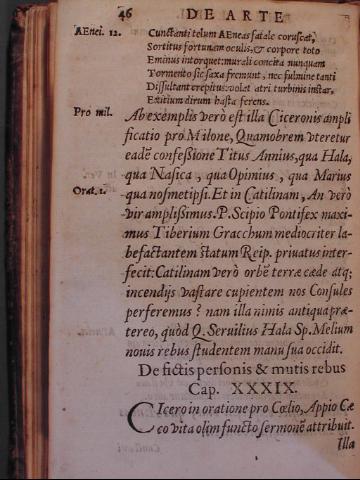 46 DE ARTE
AEnei. 12. Cunctanti telum AEneas fatale coruscat,
Sortitus fortunam oculis, & corpore toto
Eminus intorquet: murali concita nunquam
Tormento sic saxa fremunt, nec fulmine tanti
Dissultant crepitus: volat atri turbinis instar,
Exitium dirum hasta ferens.
Pro mil. Ab exemplis verò est illa Ciceronis ampli
ficatio pro Milone, Quamobrem vteretur
eadē confessione Titus Annius, qua Hala,
qua Nasica, qua Opimius, qua Marius
Orat. 1. qua nosmetipsi. Et in Catilinam, An verò
vir amplissimus. P. Scipio Pontifex maxi-
mus Tiberium Gracchum mediocriter la-
befactantem statum Reip. priuatus inter-
fecit: Catilinam verò orbē terræ cæde atq;
incendijs vastare cupientem nos Consules
perferemus? nam illa nimis antiqua præ-
tereo, quòd Q. Seruilius Hala Sp. Melium
nouis rebus studentem manu sua occidit.
De fictis personis & mutis rebus
Cap. XXXIX.
CIcero in oratione pro Cœlio, Appio Cæ
co vita olim functo sermonē attribuit.
Illa